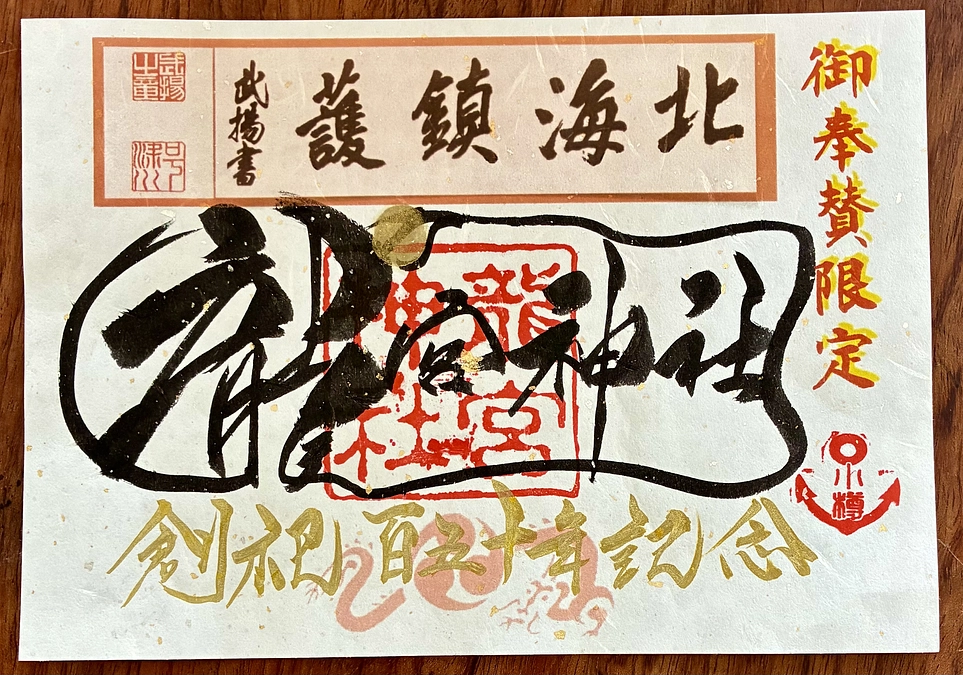 御奉賛限定
北海鎮護
武揚書
龍宮神社
龍宮神社
小樽
創祀百五十年記念